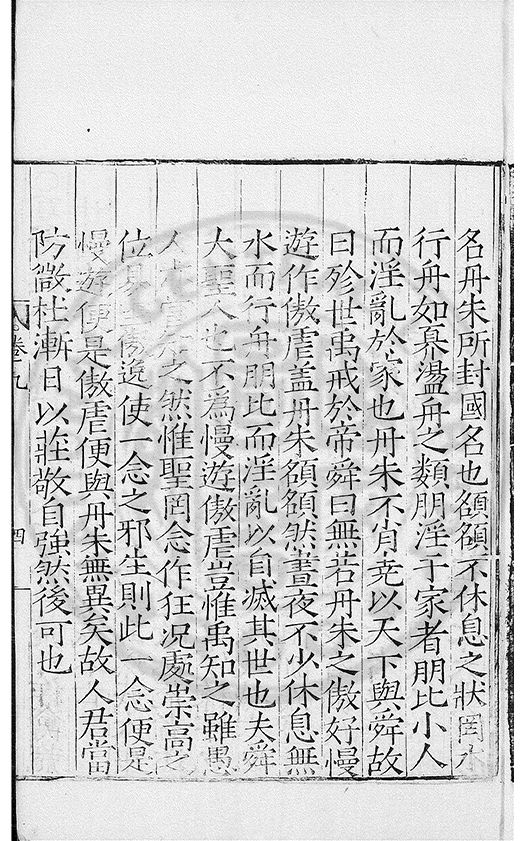 名丹朱所封國名也頟頟不休息之狀罔水
行舟如奡盪舟之類朋淫于家者朋比小人
而淫亂於家也丹朱不肖堯以天下與舜故
曰殄世禹戒於帝舜曰無若丹朱之傲好慢
遊作傲虐盖丹朱頟頟然晝夜不少休息無
水而行舟朋比而淫亂以自滅其世也夫舜
大聖人也不為慢遊傲虐豈惟禹知之雖愚
人亦當知之然惟聖罔念作狂况處崇高之
位易至傲逸使一念之邪生則此一念便是
慢遊便是傲虐便與丹朱無異矣故人君當
防微杜漸日以莊敬自強然後可也
卷九
四